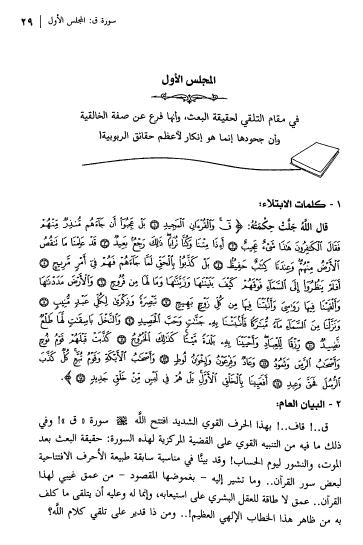 سورة ق: المجلس الأول | ٢٩
المجلس الأول
في مقام التلقي لحقيقة البعث، وأنها فرع عن صفة الخالقية
وأن جحودها إنما هو إنكار لأعظم حقائق الربوبية!
١ - كلمات الابتلاء:
قال اللَّه جَلَّتْ حِكْمَتُهُ: ﴿ قٓ ۚ وَٱلْقُرْءَانِ ٱلْمَجِيدِ ۝ بَلْ عَجِبُوٓا۟ أَن جَآءَهُم مُّنذِرٌ مِّنْهُمْ
فَقَالَ ٱلْكَٰفِرُونَ هَٰذَا شَىْءٌ عَجِيبٌ ۝ أَءِذَا مِتْنَا وَكُنَّا تُرَابًا ۖ ذَٰلِكَ رَجْعٌۢ بَعِيدٌ ۝ قَدْ عَلِمْنَا مَا تَنقُصُ
ٱلْأَرْضُ مِنْهُمْ ۖ وَعِندَنَا كِتَٰبٌ حَفِيظٌۢ ۝ بَلْ كَذَّبُوا۟ بِٱلْحَقِّ لَمَّا جَآءَهُمْ فَهُمْ فِىٓ أَمْرٍ مَّرِيجٍ ۝
أَفَلَمْ يَنظُرُوٓا۟ إِلَى ٱلسَّمَآءِ فَوْقَهُمْ كَيْفَ بَنَيْنَٰهَا وَزَيَّنَّٰهَا وَمَا لَهَا مِن فُرُوجٍ ۝ وَٱلْأَرْضَ مَدَدْنَٰهَا
وَأَلْقَيْنَا فِيهَا رَوَٰسِىَ وَأَنۢبَتْنَا فِيهَا مِن كُلِّ زَوْجٍۭ بَهِيجٍ ۝ تَبْصِرَةً وَذِكْرَىٰ لِكُلِّ عَبْدٍ مُّنِيبٍ ۝
وَنَزَّلْنَا مِنَ ٱلسَّمَآءِ مَآءً مُّبَٰرَكًا فَأَنۢبَتْنَا بِهِۦ جَنَّٰتٍ وَحَبَّ ٱلْحَصِيدِ ۝ وَٱلنَّخْلَ بَاسِقَٰتٍ لَّهَا طَلْعٌ
نَّضِيدٌ ۝ رِّزْقًا لِّلْعِبَادِ ۖ وَأَحْيَيْنَا بِهِۦ بَلْدَةً مَّيْتًا ۚ كَذَٰلِكَ ٱلْخُرُوجُ ۝ كَذَّبَتْ قَبْلَهُمْ قَوْمُ نُوحٍ
وَأَصْحَٰبُ ٱلرَّسِّ وَثَمُودُ ۝ وَعَادٌ وَفِرْعَوْنُ وَإِخْوَٰنُ لُوطٍ ۝ وَأَصْحَٰبُ ٱلْأَيْكَةِ وَقَوْمُ تُبَّعٍ ۚ كُلٌّ كَذَّبَ
ٱلرُّسُلَ فَحَقَّ وَعِيدِ ۝ أَفَعَيِينَا بِٱلْخَلْقِ ٱلْأَوَّلِ ۚ بَلْ هُمْ فِى لَبْسٍ مِّنْ خَلْقٍ جَدِيدٍ ۝ ﴾.
٢ - البيان العام:
ق..! قاف..! بهذا الحرف القوي الشديد افتتح اللَّه ﷻ سورة « ق »! وفي
ذلك ما فيه من التنبيه القوي على القضية المركزية لهذه السورة: حقيقة البعث بعد
الموت، والنشور ليوم الحساب! وقد بينَّا في مناسبة سابقة طبيعة الأحرف الافتتاحية
لبعض سور القرآن.. وما تشير إليه - بغموضها المقصود - من عمق غيبي لهذا
القرآن.. عمق لا طاقة للعقل البشري على استيعابه، وإنما له وعليه أن يتلقى ما كلف
به من ظاهر هذا الخطاب الإلهي العظيم!.. ومن ذا قدير على تلقي كلام اللَّه؟